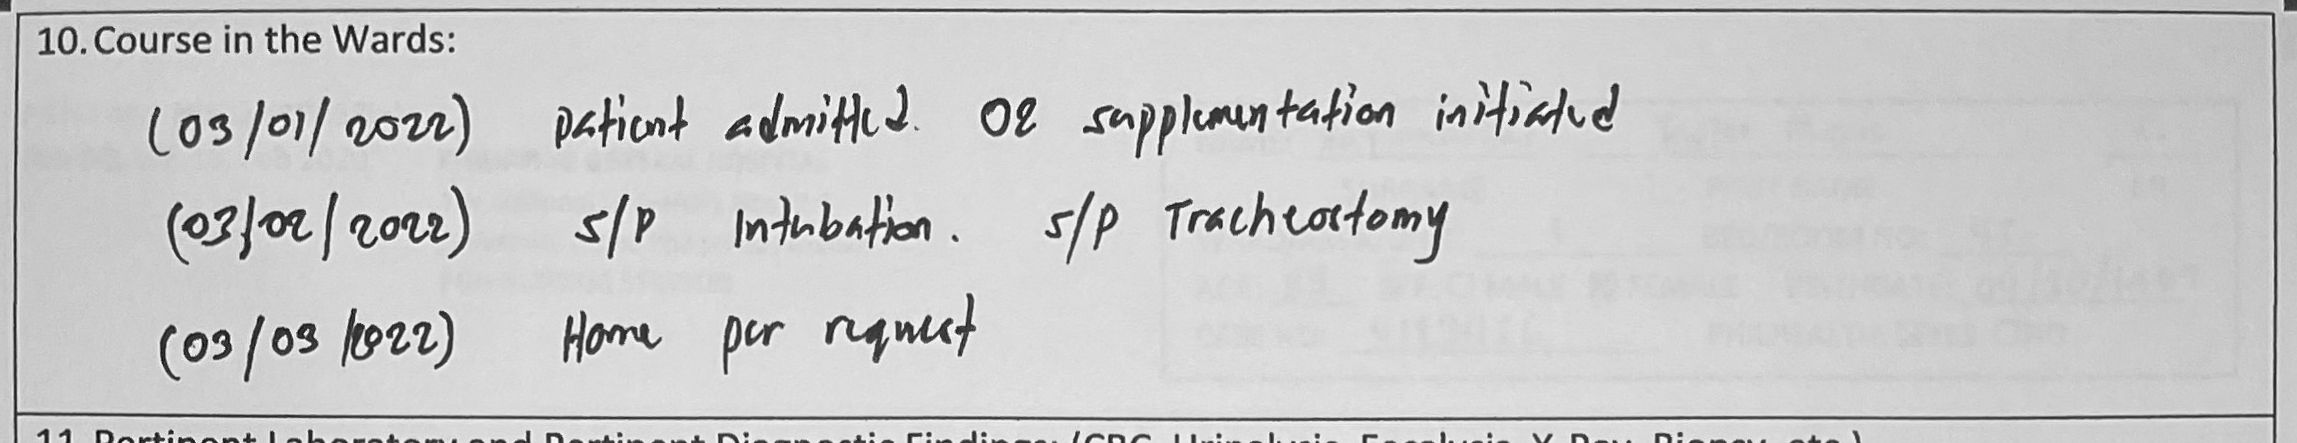 10. Course in the Wards:
(03/01/2022) patient admitted. O2 supplementation initiated
(03/02/2022) S/P Intubation. S/P Tracheostomy
(03/03/2022) Home per request
11. Pertinent Laboratory and Pertinent Diagnostic Findings: (CBC, Urinalysis, Fecalysis, X-Ray, Biopsy, etc.)